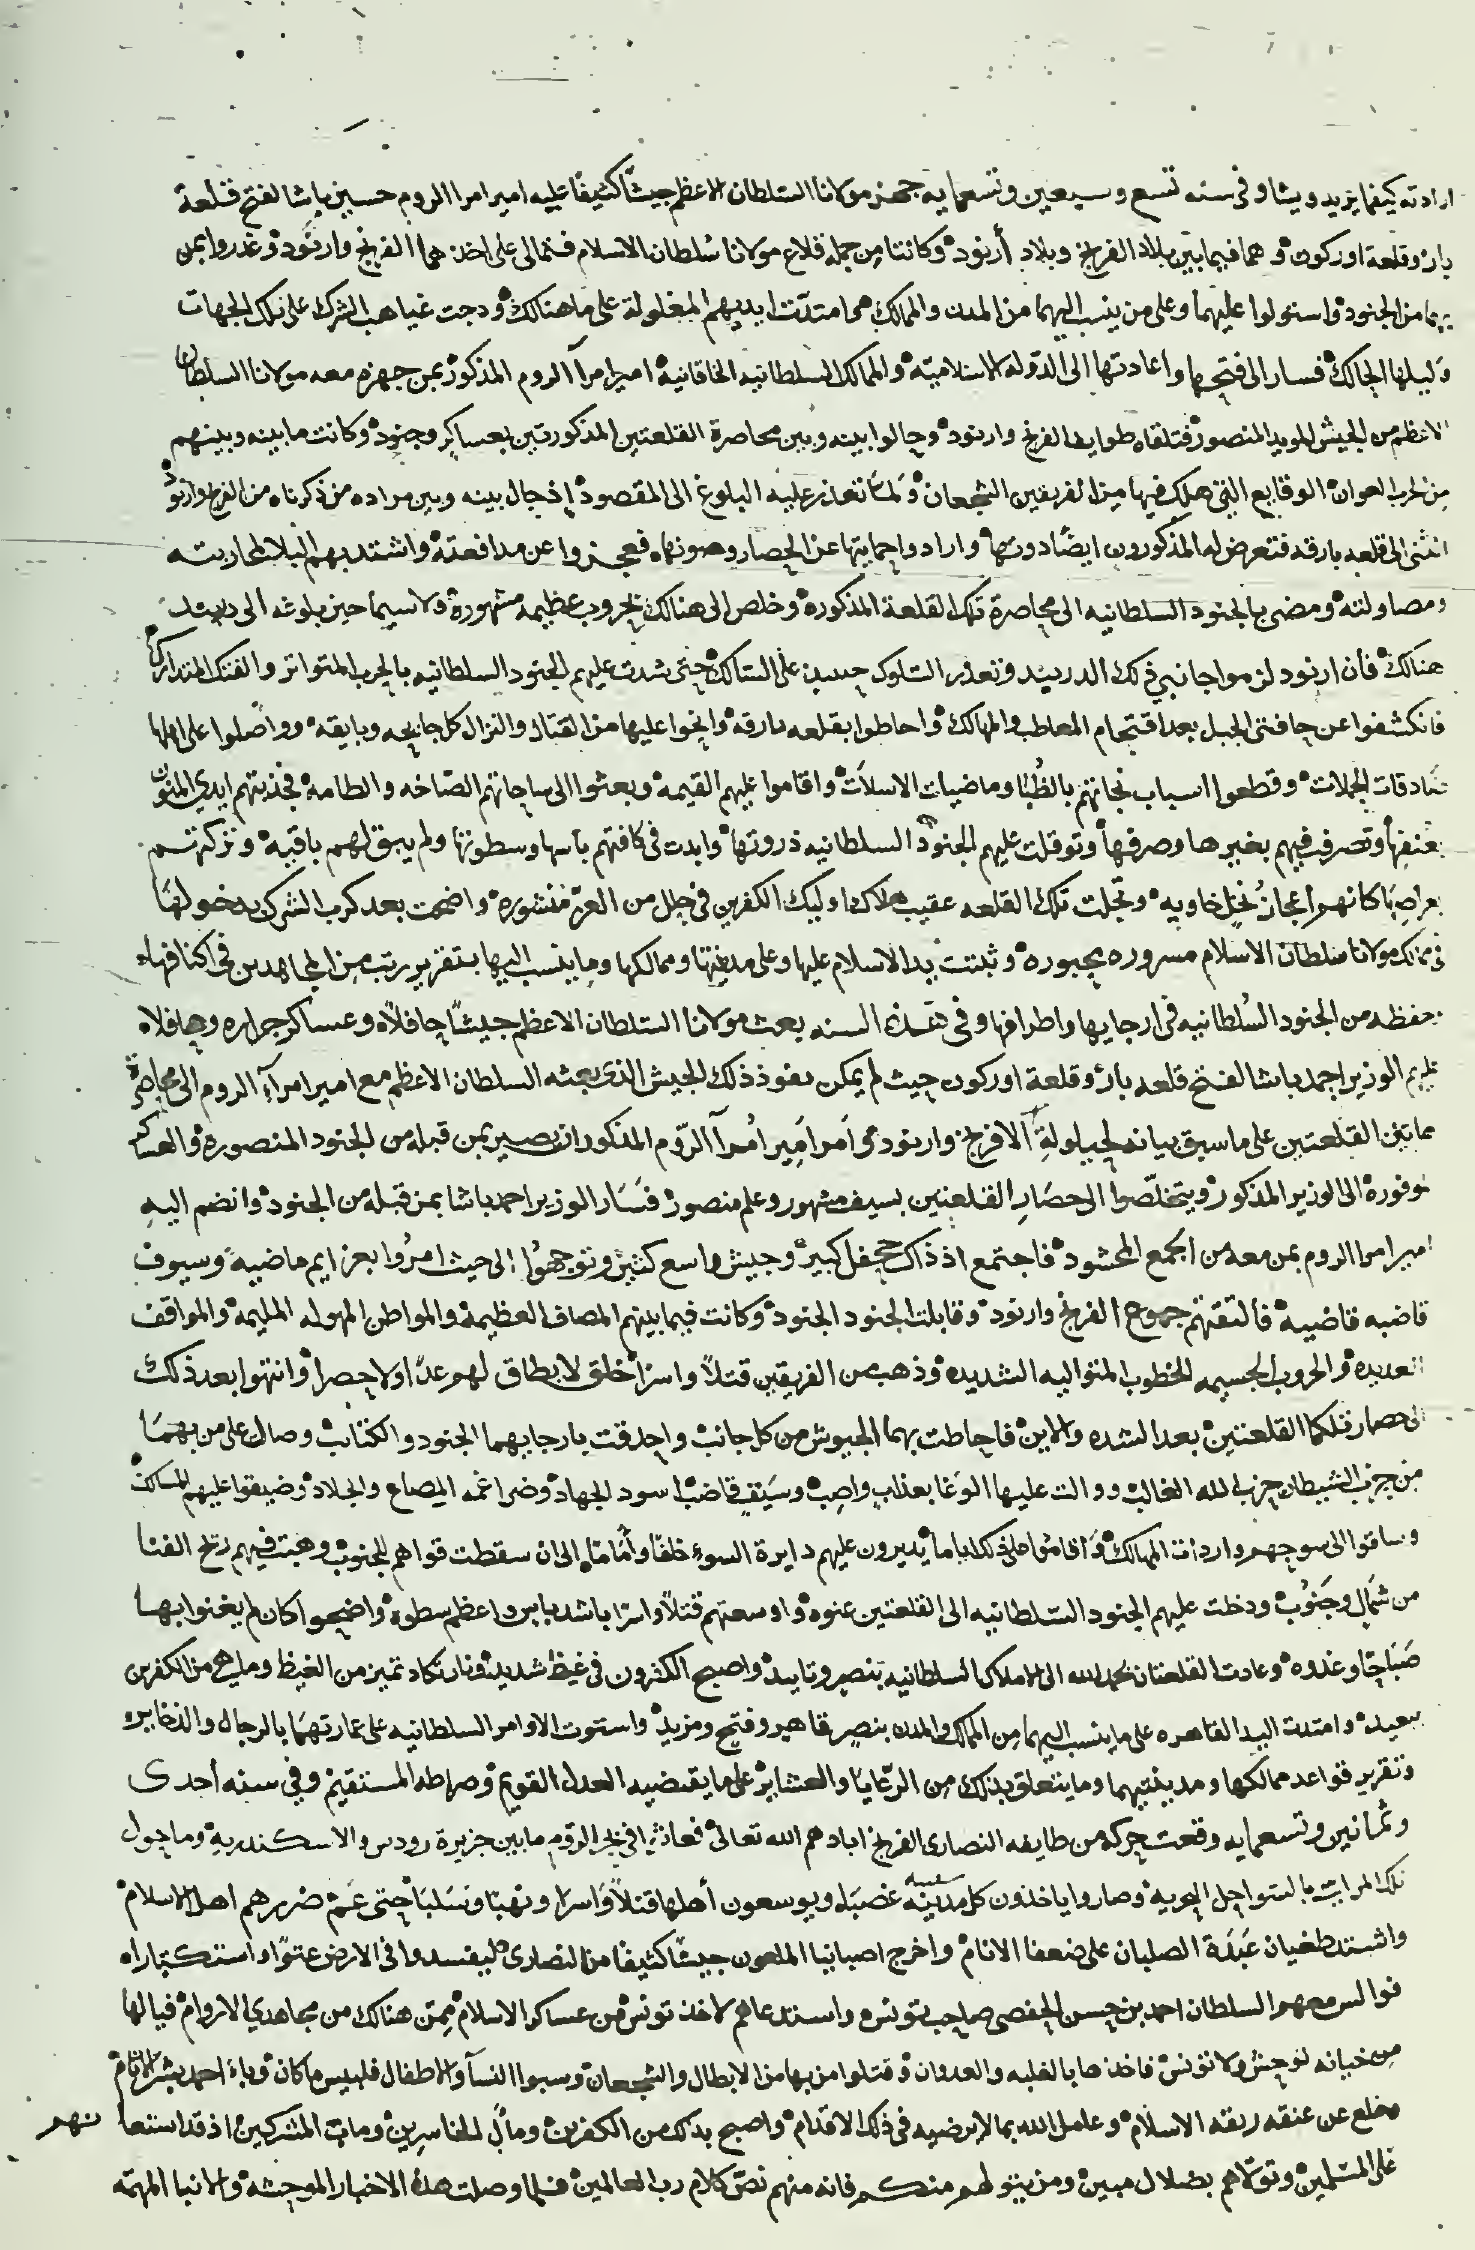 ارادته كيفما يريد ويشا وفى سنه تسع وسبعين وتسعمايه جهز مولانا السلطان الاعظم جيشًا كثيفًا عليه امير امرا الروم حسين باشا لفتح قلعة
بار وقلعة اوركون وهما فيما بين بلاد الفرنج وبلاد أرنود وكانتا من جمله قلاع مولانا سُلطان الاسلام فتمالى على اخذهما الفرنج وارنود وغدروا بمن
بهما من الجنود واستولوا عليهما وعلى من ينسب اليهما من المدن والممالك وامتدّت ايديهم المغلولة على ما هنالك ودجت غياهب الشرك على تلك الجهات
وليلها الحالك فسار الى فتحها واعادتها الى الدّوله الاسلاميّه والممالك السلطانيه الخاقانية امير امرآ الروم المذكور بمن جهزه معه مولانا السلطان
الاعظم من الجيش المويد المنصور فتلقاه طوايف الفرنج وارنود وحالوا بينه وبين محاصرة القلعتين المذكورتين بعساكر وجنود وكانت ما بينه وبينهم
من الحرب العوان الوقايع التى هلك فيها من الفريقين الشجعان ولمّا تعذر عليه البلوغ الى المقصود إذ حال بينه وبين مراده من ذكرناه من الفرنج وارنود
انثنى الى قلعه بارقه فتعرض له المذكورون ايضًا دونها وارادوا حمايتها عن الحصار وصونها فعجزوا عن مدافعته واشتد بهم البلا لمحاربته
ومصاولته ومضى بالجنود السلطانيه الى محاصرة تلك القلعة المذكوره وخلص الى هنالك بحروب عظيمه مشهورة ولا سيما حين بلوغه الى دربند
هنالك فان ارنود لزموا جانبي ذلك الدربند وتعذر السلوك حينئذ على السالك حتى شدت عليهم الجنود السلطانيه بالحرب المتواتر والفتك المتدارك
فانكشفوا عن حافتى الجبل بعد اقتحام المعاطب والمهالك واحاطوا بقلعه بارقه وانحوا عليها من القتال والنزال كل جايحه وبايقه وواصلوا على اهلها
صادقات الحملات وقطعوا اسباب نجاتهم بالظُبا وماضيات الاسلات واقاموا عليهم القيمه وبعثوا الى ساحاتهم الصّاخه والطامه فجذبتهم ايدي المنون
بعنفها وتصرفت فيهم بغيرها وصرفها وتوقلت عليهم الجنود السلطانيه ذروتها وابدت فى كافتهم باسها وسطوتها ولم يبق لهم باقيه وتركتهم
بعراصها كانهم أعجازُ نخلٍ خاويه وتجلت تلك القلعه عقيب هلاك اوليك الكفرين فى حلل من العز منشوره واضحت بعد كرب الشرك بدخولها
فى ممالك مولانا سلطان الاسلام مسروره محبوره وثبتت يد الاسلام عليها وعلى مدينتها وممالكها وما ينسب اليها بتقرير رتب من المجاهدين فى اكنافها
وحفظه من الجنود السُلطانيه فى ارجايها واطرافها وفى هذه السنه بعث مولانا السلطان الاعظم جيشًا حافلًا وعساكر جراره وجحافلا
عليهم الوزير احمد باشا لفتح قلعه بار وقلعة اوركون حيث لم يمكن نفوذ ذلك الجيش الذى بعثه السلطان الاعظم مع امير امرآء الروم الى محاصرة
هاتين القلعتين على ما سبق بيانه لحيلولةِ الافرنج وارنود وامر امير امرآ الرّوم المذكور ان يصير بمن قبله من الجنود المنصوره والعساكر
الموفورة الى الوزير المذكور ويتخلّصوا الى حصَارِ القلعتين بسيف مشهور وعلم منصور فسَار الوزير احمد باشا بمن قبله من الجنود وانضم اليهِ
امير امرا الروم بمن معه من الجمع المحشود فاجتمع اذ ذاك جحفل كبير وجيش واسع كثير وتوجهُوا الى حيث امرُوا بعزايم ماضيه وسيوف
قاضبه قاضيه فالتقتهم جموع الفرنج وارنود وقابلت الجنود الجنود وكانت فيما بينهم المصاف العظيمة والمواطن المهوله المليمه والمواقف
العديده والحروب الجسيمه الخطوب المتواليه الشديده وذهب من الفريقين قتلًا واسرًا خلق لا يطاق لهم عدًا ولا حصرا وانتهوا بعد ذلك
الى حصار تلكما القلعتين بعد الشده والاين فاحاطت بهما الجيوش من كل جانب واحدقت بارجايهما الجنود والكتايب وصال على من بهمَا
من حزب الشيطان حزب الله الغالب ووالت عليها الوَغا بعذاب واصب وسَيفٍ قاضب اسود الجهاد وضراغمه المصاع والجلاد وضيقوا عليهم المسالك
وساقوا الى سوحهم واردات المهالك وَاقاموا على ذلك اياما يُديرون عليهم دايرة السوءِ خلفًا وأمامًا الى ان سقطت قواهم للجنوب وهبت فيهم ريح الفنا
من شمالٍ وجَنوُب ودخلت عليهم الجنود السّلطانيه الى القلعتين عنوه واوسعتهم قتلًا واسرًا باشد باس واعظم سطوة واضحوا كان لم يغنوا بهـا
صَباحًا وغدوه وعادت القلعتان بحمد الله الى الاملاك السلطانيه بنصرٍ وتاييد واصبح الكفرون فى غيظ شديد ونار تكاد تميز من الغيظ وما هي من الكفرين
ببعيد وامتدت اليد القاهره على ما ينسب اليهما من الممالك والمدن بنصرٍ قاهرٍ وفتح ومزيد واستوت الاوامر السلطانيه على عمارتهمَا بالرجال والذخاير
وتقرير قواعد ممالكها ومدينتيهما وما يتعلق بذلك من الرعَايا والعشاير على ما يقتضيه العدل القويم وصراطه المستقيم وفي سنه أحدى
وثمانين وتسعمايه وقعت حركه من طايفه النصارى الفرنج ابادهم الله تعالى فعاثوا فى بحر الرّوم ما بين جزيرة رودس والاسكندريه وما حول
تلك المراسِ بالسواحل البحريه وصاروا ياخذون كل سفينه غصبًا ويوسعون أهلها قتلًا وَاسرًا ونهبًا وسَلبَا حتى عَمَّ ضررهم اهل الاسلام
واشتد طغيان عَبَدَة الصلبان على ضعفا الانام واخرج اصبانيا الملعون جيشًا كثيفًا من النصارى ليفسدوا فى الارض عتوًا واستكبارا
فوالس معهم السلطان احمد بن حسن الحفصى صاحب تونس واستدعاهم لاخذ تونس من عساكر الاسلام ممّن هنالك من مجاهدي الاروام فيا لها
من خيانه توحش ولا تونس فاخذها بالغلبه والعدوان وقتلوا من بها من الابطال والشجعان وسبوا النسآ والاطفال فلبيس ما كان وباء احمد بشر الانام
مخلع عن عنقه ربقه الاسلام وعامل الله بما لا يرضيه فى ذلك الاقدام واصبح بذلك من الكفرين ومآل الخاسرين ومات المشركين اذ قد استعا نهم
على المسلمين وتولّاهم بضلال مبين ومن يتولهم منكم فانه منهم نصّ كلام رب العالمين فلما وصلت هذه الاخبار الموحشه والانبا المهمّه